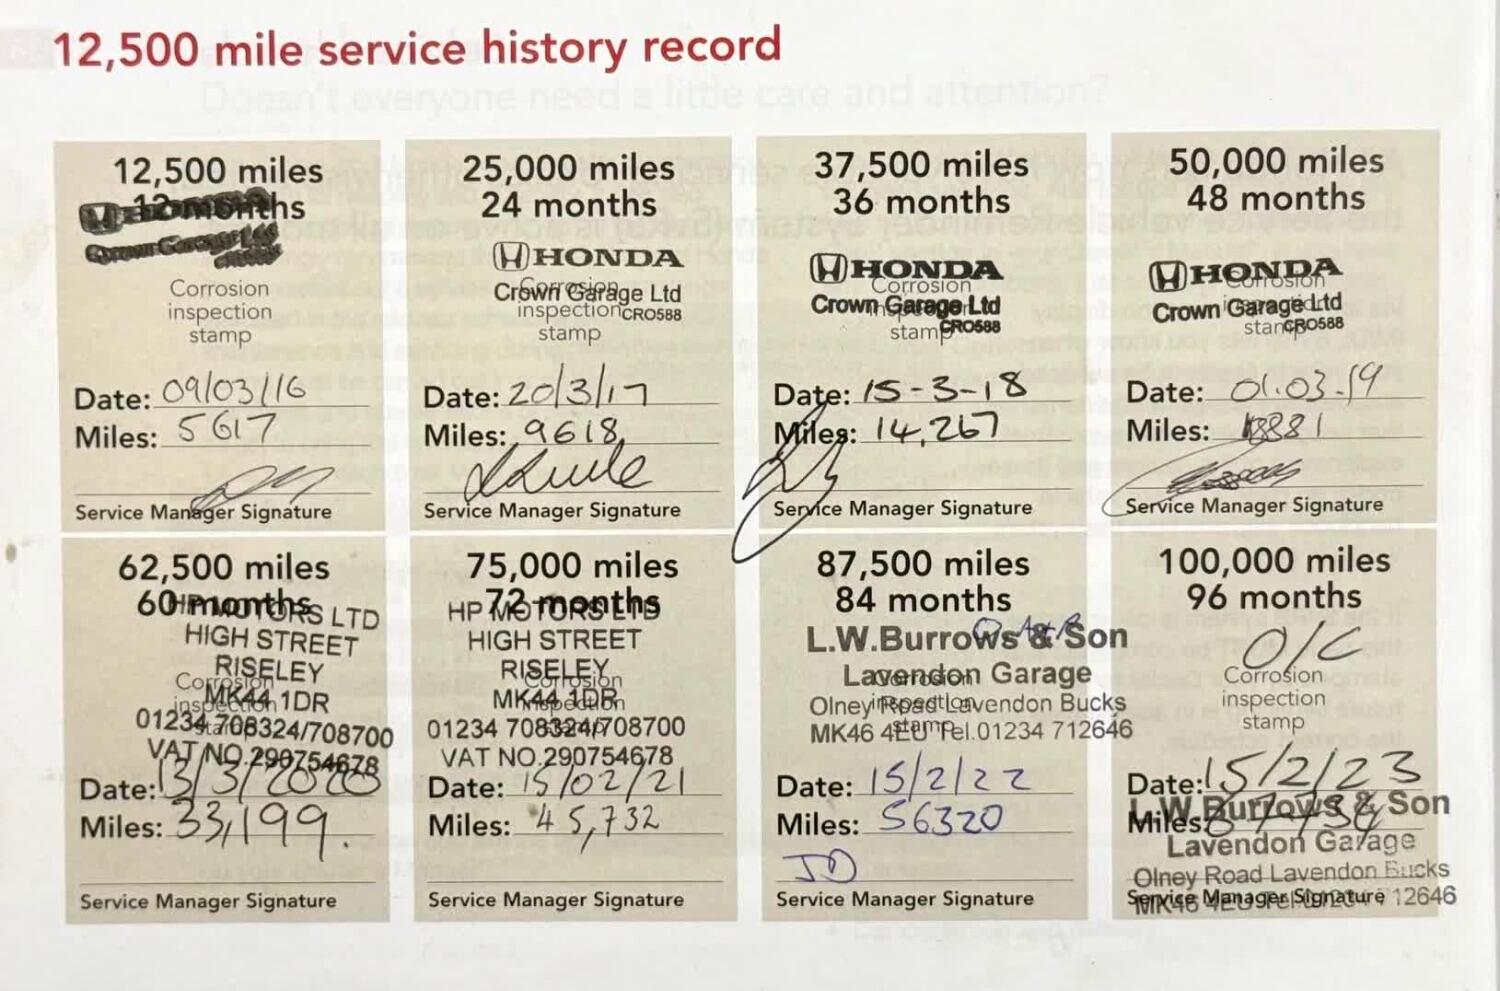 12,500 mile service history record
Doesn't everyone need a little care and attention?
12,500 miles
12 months
Crown Garage Ltd
Corrosion
inspection
stamp
Date: 09/03/16
Miles: 5617
Service Manager Signature
25,000 miles
24 months
HONDA
Corrosion
Crown Garage Ltd
inspection CRO588
stamp
Date: 20/3/17
Miles: 9618
Service Manager Signature
37,500 miles
36 months
HONDA
Corrosion
Crown Garage Ltd
inspection
stamp CRO588
Date: 15-3-18
Miles: 14,267
Service Manager Signature
50,000 miles
48 months
HONDA
Corrosion
Crown Garage Ltd
inspection
stamp CRO588
Date: 01.03.19
Miles: 18881
Service Manager Signature
62,500 miles
60 months
HP MOTORS LTD
HIGH STREET
RISELEY
Corrosion
MK44 1DR
inspection
stamp
01234 708324/708700
VAT NO.290754678
Date: 13/3/2020
Miles: 33,199.
Service Manager Signature
75,000 miles
72 months
HP MOTORS LTD
HIGH STREET
RISELEY
Corrosion
MK44 1DR
inspection
stamp
01234 708324/708700
VAT NO.290754678
Date: 15/02/21
Miles: 45,732
Service Manager Signature
87,500 miles
84 months
L.W.Burrows & Son
Lavendon Garage
Corrosion
inspection
Olney Road Lavendon Bucks
stamp
MK46 4EU Tel.01234 712646
Date: 15/2/22
Miles: 56320
JD
Service Manager Signature
100,000 miles
96 months
O/C
Corrosion
inspection
stamp
Date: 15/2/23
L.W.Burrows & Son
Miles:
Lavendon Garage
Olney Road Lavendon Bucks
Service Manager Signature
MK46 4EU Tel.01234 712646